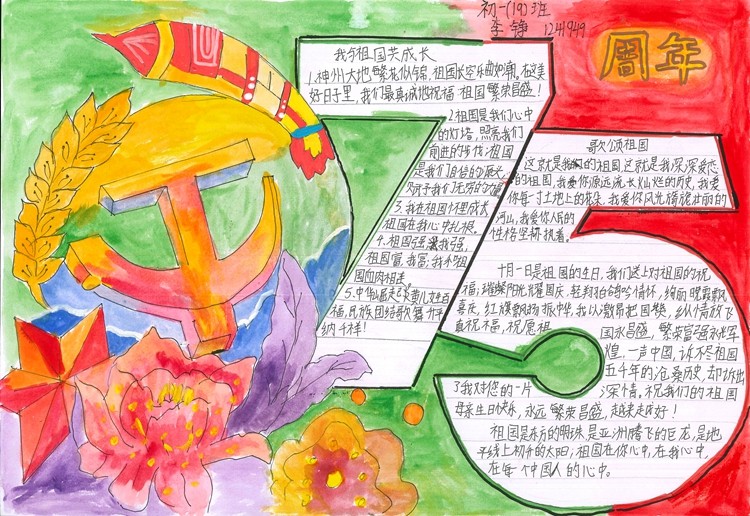 初一(19)班
李铮 1241949
周年
我与祖国共成长
1.神州大地繁花似锦,祖国长空乐曲如潮,在这美
好日子里,我们最真诚地祝福祖国繁荣昌盛!
2.祖国是我们心中
的灯塔,照亮我们
前进的步伐;祖国
是我们
3.我在祖国怀里成长
祖国在我心中扎根。
4.祖国强,我强,
祖国富,我富;我和祖
国血肉相连
5.中华
福,民族团结歌舞升平
纳千祥!
歌颂祖国
这就是我们的祖国,这就是我深深爱恋
的祖国。我爱你源远流长灿烂的历史,我爱
你每一寸土地上的花朵,我爱你风光旖旎壮丽的
河山,我爱你人民的
性格坚韧执着。
十月一日是祖国的生日,我们送上对祖国的祝
福;璀璨阳光耀国庆,轻翔白鸽寄情怀,绚丽晚霞
喜庆,红旗飘飘
真祝福,祝愿祖
国永昌盛,繁荣富强永辉
煌。一声中国,诉不尽祖国
五千年的沧桑历史,却诉出
了我对您的一片
深情。祝我们的祖国
母亲生日快乐,永远繁荣昌盛,越来越好!
祖国是东方的明珠,是亚洲腾飞的巨龙,是地
平线上初升的太阳;祖国在你心中,在我心中,
在每个中国人的心中。
75